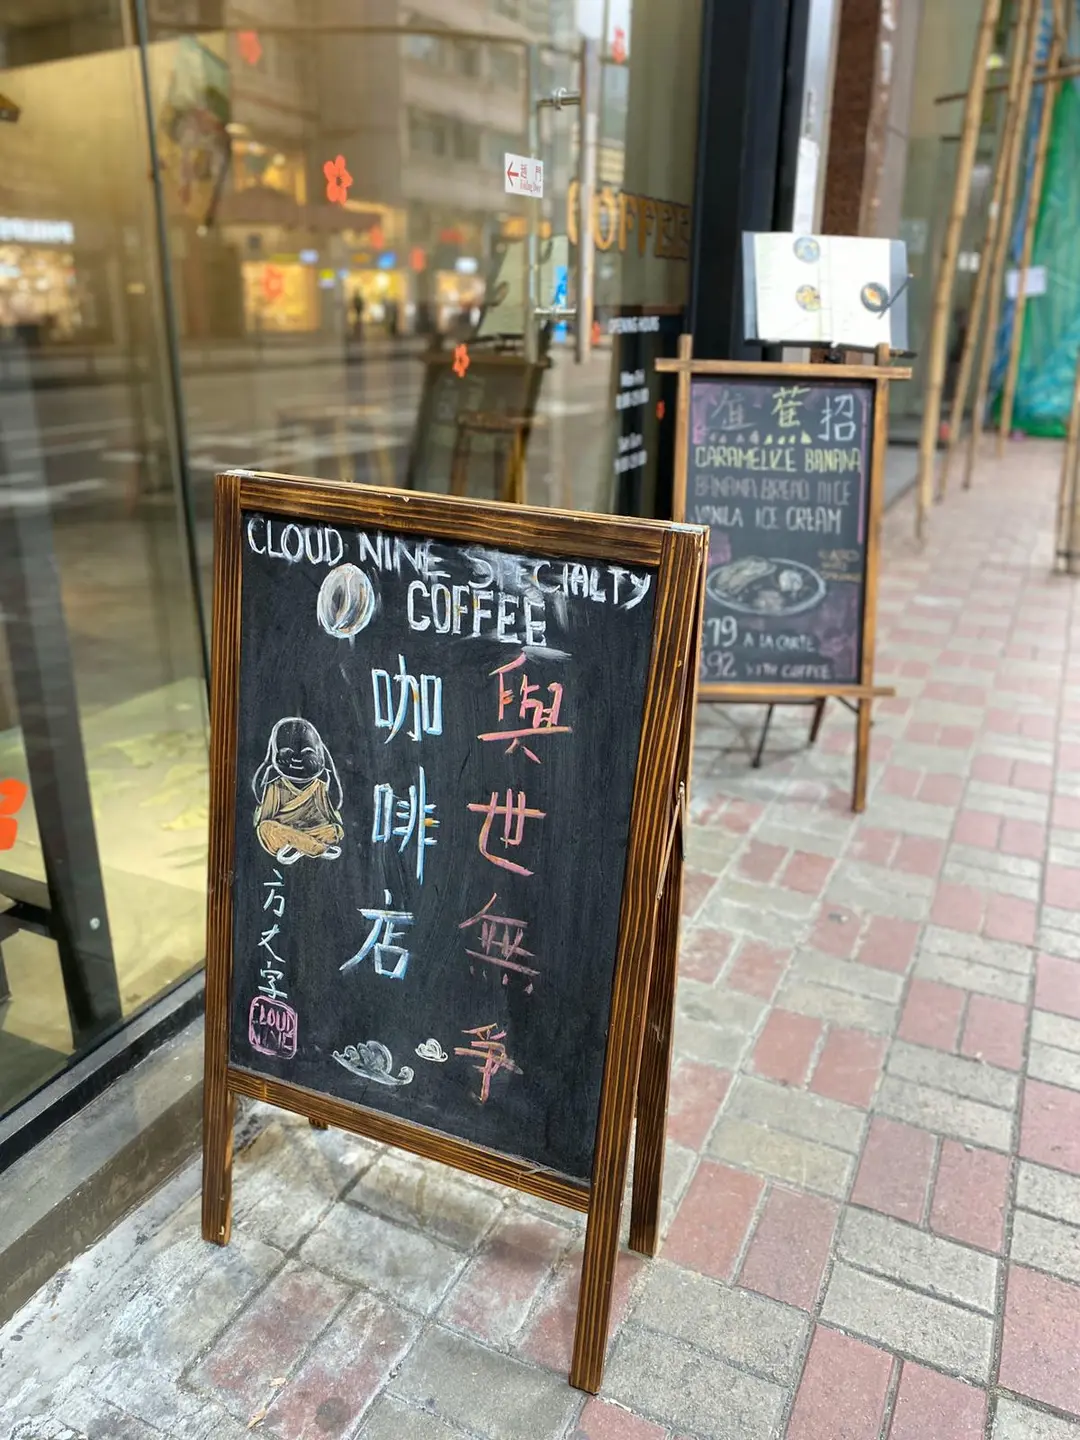 CLOUD NINE SPECIALTY
COFFEE
與世無爭
咖啡店
方丈字
CLOUD
NINE
COFFEE
OPENING HOURS
趟門
Sliding Door
蕉
招
CARAMELIZE BANANA
BANANA BREAD
ICE CREAM
$79 A LA CARTE
$92 WITH COFFEE